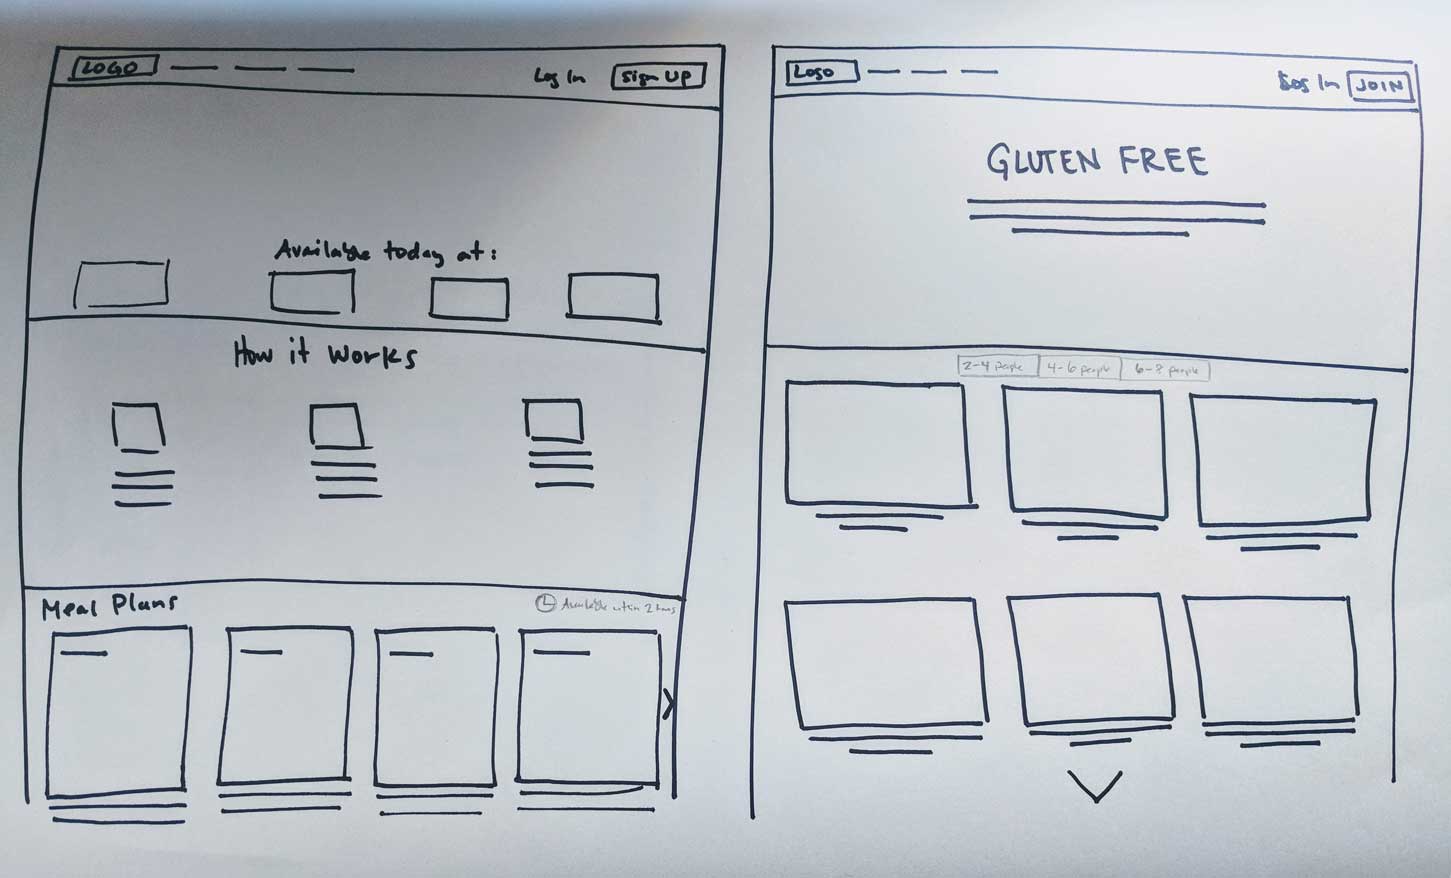 LOGO
Log In
Sign UP
Available today at:
How it Works
Meal Plans
Available within 2 hours
Logo
Log In
JOIN
GLUTEN FREE
2-4 people
4-6 people
6-8 people